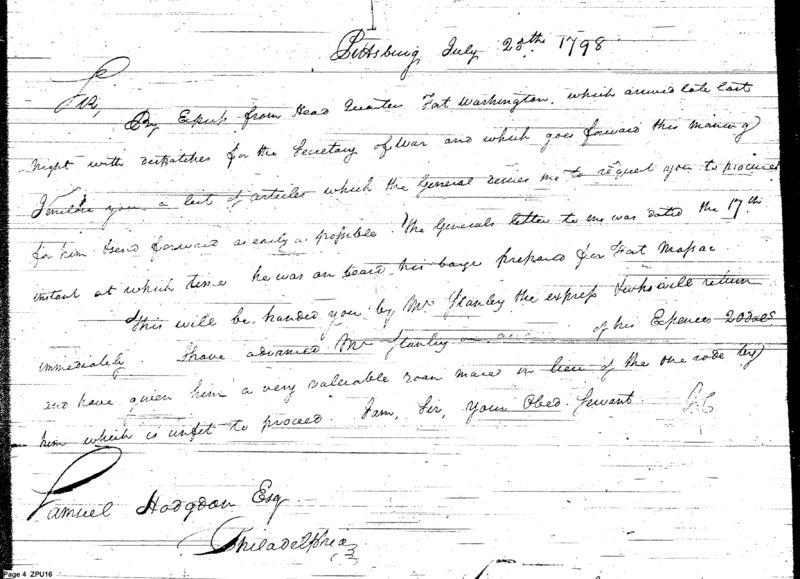 Pittsburg July 25th 1798
Sir,
By Express from Head Quarters Fort Washington, which arrived late last
night with dispatches for the Secretary of War and which goes forward this morning
I enclose you a list of articles which the General desires me to request you to procure
for him & send forward as early as possible. The Generals letter to me was dated the 17th
instant at which time he was on board his barge prepared for Fort Massac.
This will be handed you by Mr Stanley the express & who will return
immediately. I have advanced Mr Stanley on of his Expences 20 dols
and have given him a very valuable roan mare in lieu of the one rode by
him which is unfit to proceed. I am, Sir, your Obed. Servant
Samuel Hodgdon Esq
Philadelphia
Page 4 ZPU16